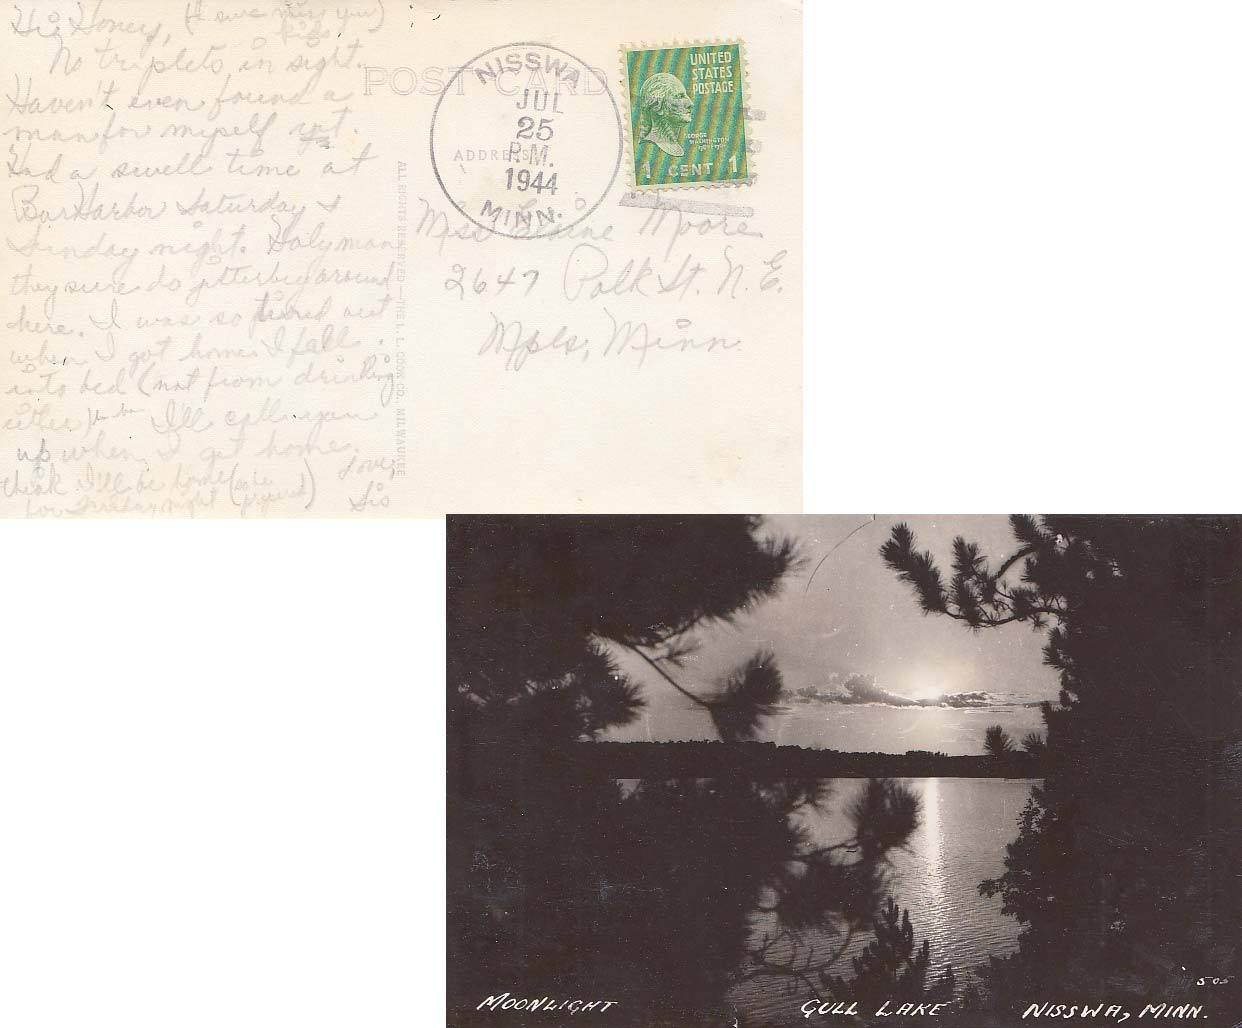 Hi, Honey, (I sure miss you)
kids
No triplets in sight.
Haven't even found a
man for myself yet.
Had a swell time at
Bar Harbor Saturday &
Sunday night. Holy man
they sure do jitterbug around
here. I was so tired out
when I got home I fell
into bed (not from drinking
either) I'll call you
up when I get home.
think I'll be home (so be
for Friday night prepared)
Love,
Sis
POST CARD
ADDRESS
ALL RIGHTS RESERVED — THE L. L. COOK CO., MILWAUKEE
NISSWA
JUL
25
P.M.
1944
MINN.
UNITED
STATES
POSTAGE
GEORGE
WASHINGTON
1 CENT 1
Miss Elaine Moore
2647 Polk St. N.E.
Mpls, Minn.
505
MOONLIGHT GULL LAKE NISSWA, MINN.